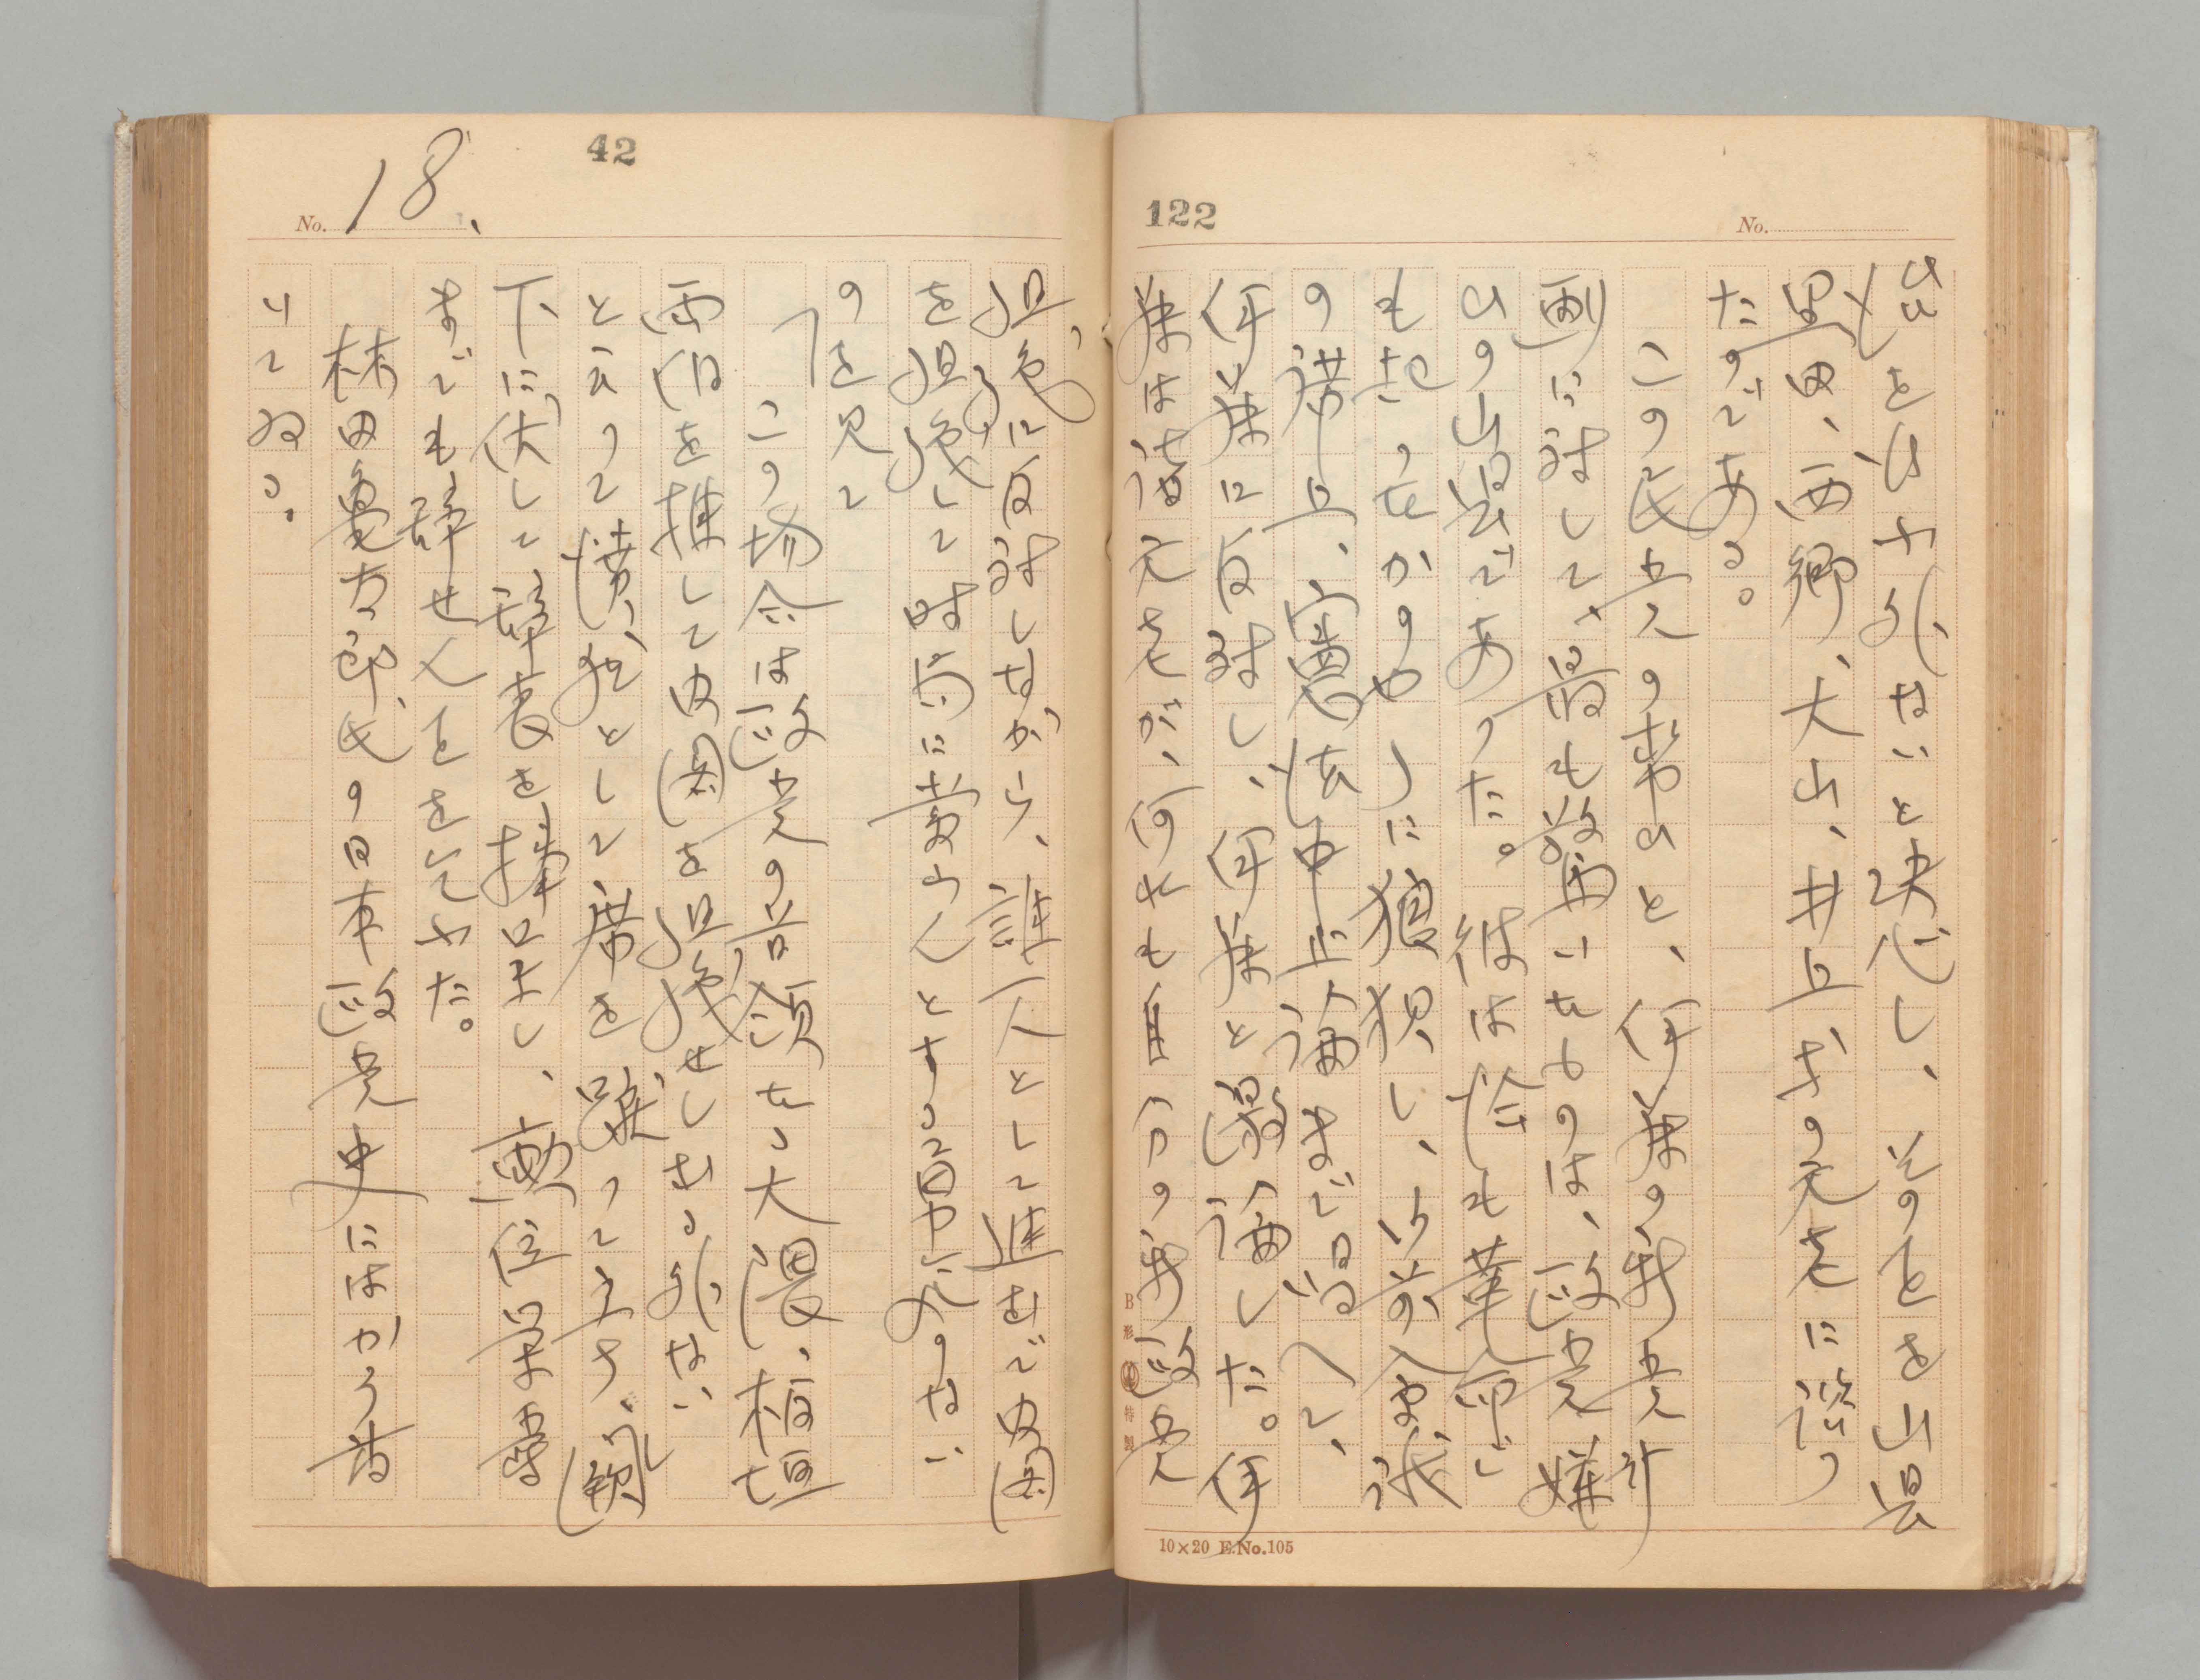 122
No.
出を仕ふ外ないと決心し、そのことを山県
黒田、西郷、大山、井上等の元老に諮つ
たのである。
この民党の勢ひと、伊藤の新党計
画に対して、最も驚いたものは、政党嫌
ひの山県であつた。彼は恰も革命に
も起つたかのやうに狼狽し、御前会議
の講上、憲法中止論まで唱へて、
伊藤に反対し、伊藤と激論した。伊
藤は諸元老が、何れも自分の新政党
B形 特製
10×20 E.No.105
42
No. 18、
担急に反対しながら、誰一人として進むで内閣
を担急して時局に当らんとする勇气がない
のを見て
「この場合は政党の首領たる大隈、板垣
両伯を推して内閣を担急せしむる外ない
と云つて憤然として席を蹴つて立ち、闕
下に伏して辞表を捧呈し、勲位栄爵
までも辞せんことを乞ふた。
林田亀太郎氏の日本政党史にはかう書
いてゐる。